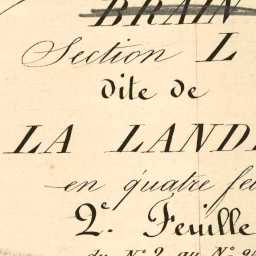 BRAIN
Section L
dite de
LA LANDE
en quatre feu
2e. Feuille
du No. 2 au No.